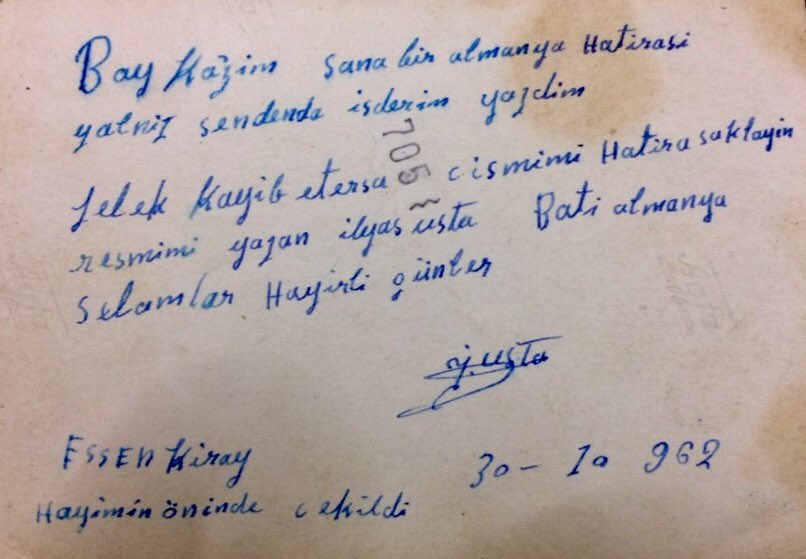 Bay Kâzim sana bir almanya Hatirasi
yalniz sendende isderim yazdim
felek Kayib etersa cismimi Hatira saklayin
resmimi yazan ilyas usta Bati almanya
Selamlar Hayirli günler
705
i. usta
ESSEN Kiray
Hayimin öninde cekildi
30-10 962